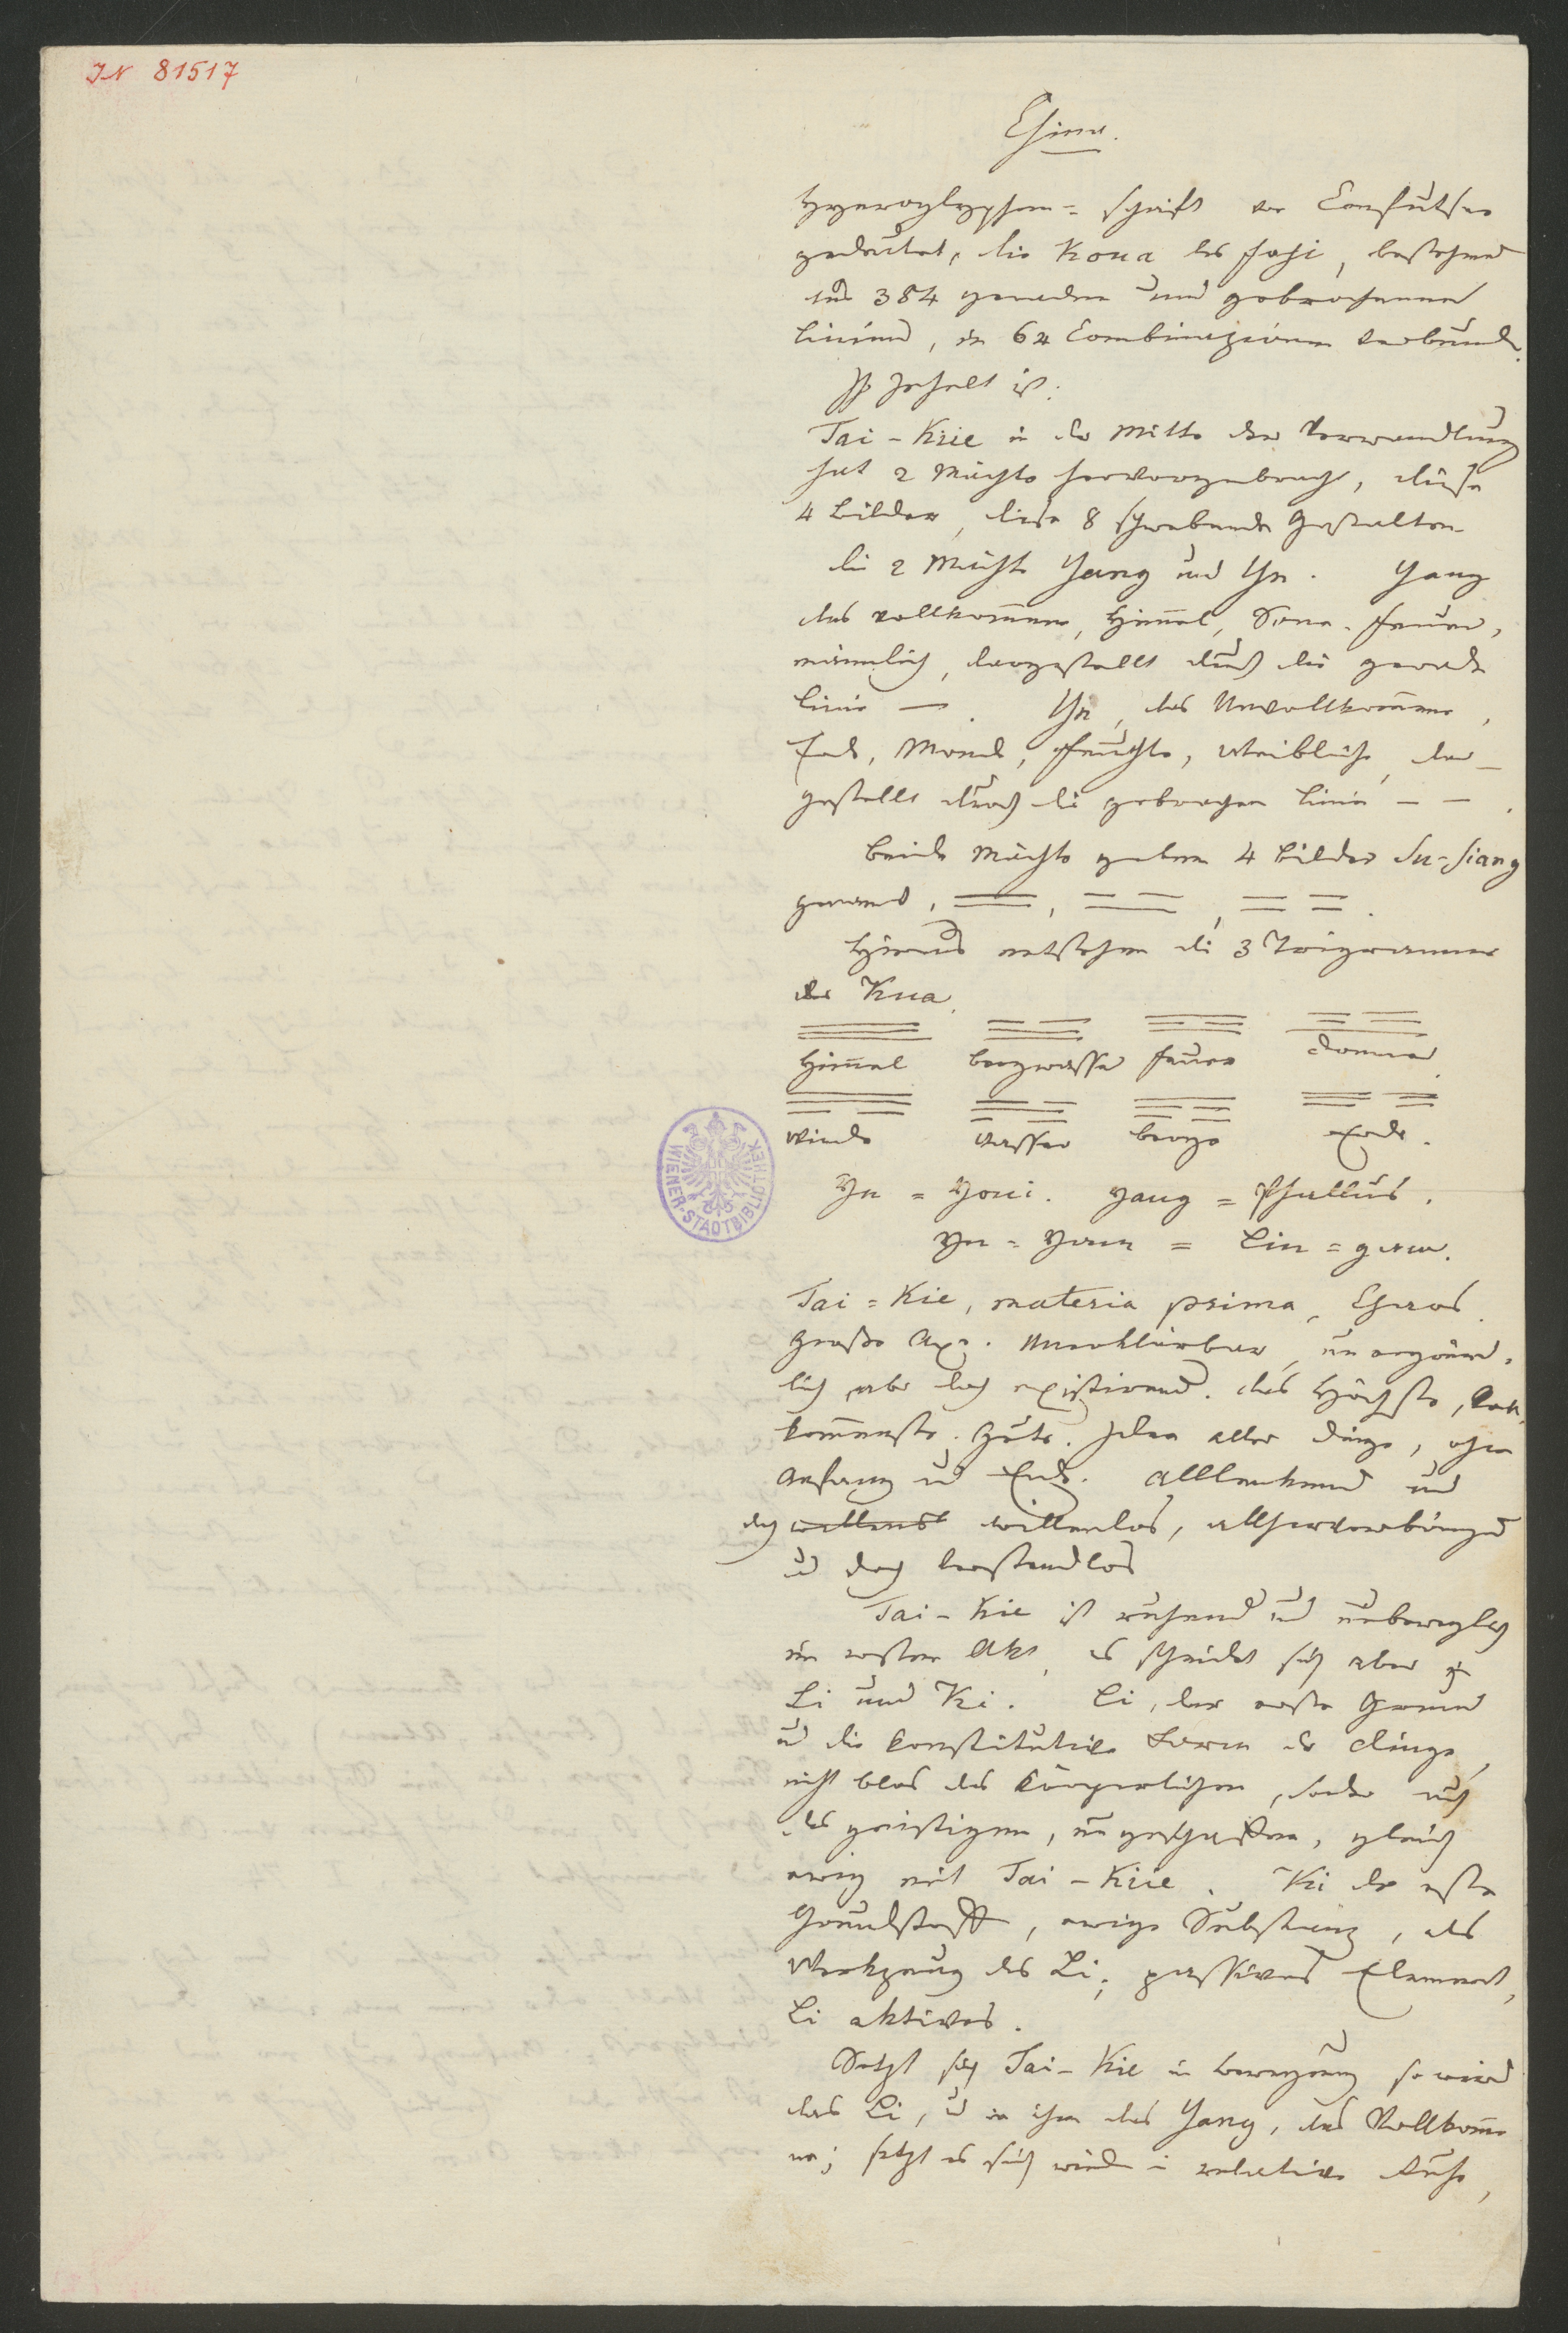 IN 81517
China.
Hyeroglyphen=schrift von Confutsee
gedeutet, die Koua des Fohi, bestehend
aus 384 geraden und gebrochenen
Linien, in 64 Combinazionen verbund.
Ihr Inhalt ist:
Tai-Kiie in der Mitte der Verwandlung
hat 2 Mächte hervorgebracht, diese
4 Bilder, diese 8 schwebende Gestalten
die 2 Mächte Yang und Yn. Yang
das vollkommene, Himmel, Sonne. Feuer,
männlich, dargestellt durch die gerade
Linie —. Yn, das Unvollkommene,
Erde, Mond, Feuchte, Weibliche, dar-
gestellt durch die gebrochen Linie – –.
Beide Mächte geben 4 Bilder Su-Siang
genannt,
Hieraus entstehen die 3 Trigramme
der Kua.
Himmel Bergwasser Feuer Donner
Winde Wasser Berge Erde.
Yn = Yoni. Yang = Phallus.
Yn = Yoan = Lin = gam.
Tai=Kie, materia prima, Chaos.
große Axe. Unerklärbar, unergründ-
lich aber doch existirend. das Höchste, Voll-
kommenste. Gute. Idee aller Dinge, ohne
Anfang und Ende. Alllenkend und
doch willenlos, allhervorbringend
und doch verstandlos
Tai-Kie ist ruhend und unbeweglich
im ersten Akt, es scheidet sich aber in
Li und Ki. Li, der erste Grund
und die konstitutive Form der Dinge,
nicht blos des Körperlichen, sonder auch
des geistigen, ungeschaffen, gleich
ewig mit Tai-Kiie. Ki der erste
Grundstoff, ewige Substanz, als
Werkzeug des Li; passives Element,
Li aktives.
Setzt sich Tai-Kie in Bewegung so wird
das Li, und in ihm das Yang, das Vollkomme
ne; setzt es sich wieder in relative Ruhe,
WIENER-STADTBIBLIOTHEK